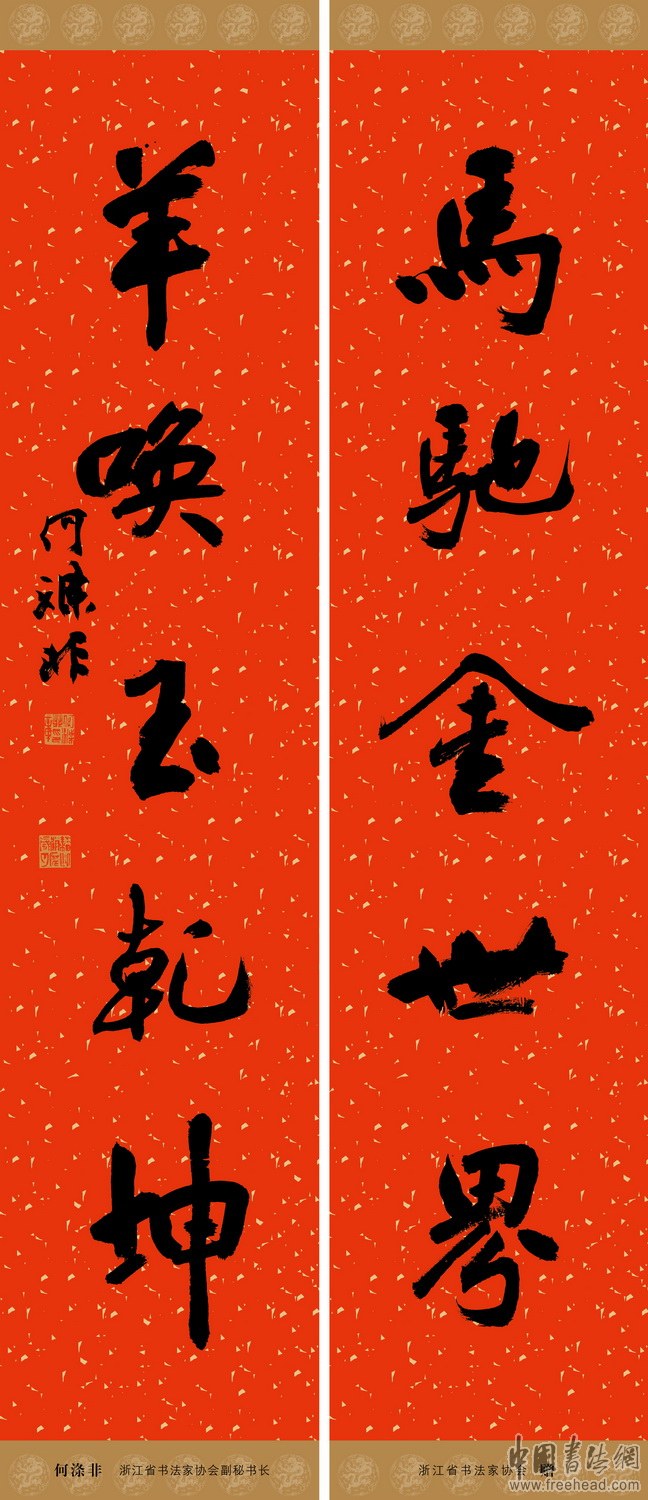 馬馳金世界
羊喚玉乾坤
何滌非
何涤非 浙江省书法家协会副秘书长
浙江省书法家协会 赠
中国书法網
www.freehead.com